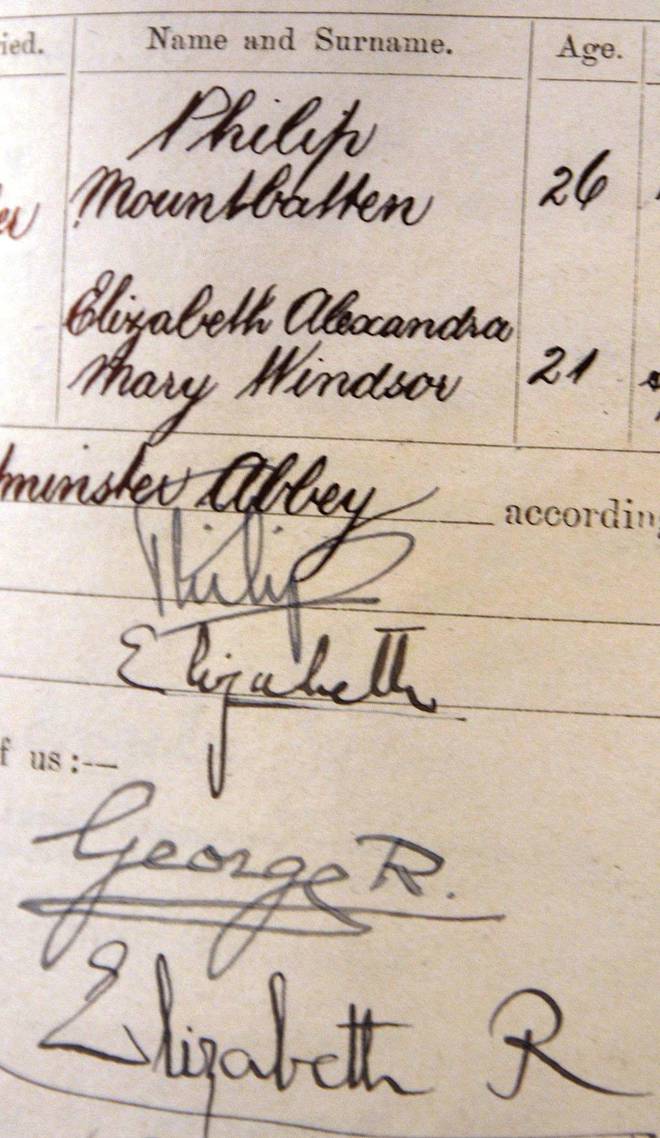 ied. Name and Surname. Age.
Philip
Mountbatten 26
Elizabeth Alexandra
Mary Windsor 21
minster Abbey accordin
Philip
Elizabeth
f us:—
George R.
Elizabeth R